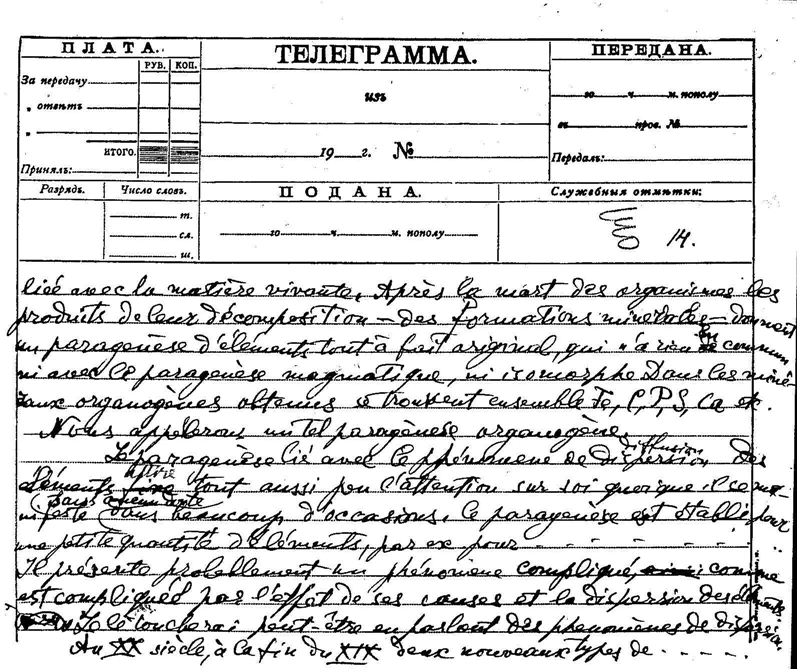 ПЛАТА.
РУБ. КОП.
За передачу
„ отвѣтъ
„
ИТОГО.
Принялъ:
ТЕЛЕГРАММА.
изъ
19 г. №
ПЕРЕДАНА.
го ч. м. пополу
въ пров. №
Передалъ:
Разрядъ. Число словъ.
т.
сл.
ш.
ПОДАНА.
го ч. м. пополу
Служебныя отмѣтки:
14.
liée avec la matière vivante. Après la mort des organismes les
produits de leur décomposition – des formations minerales – donnent
un paragenèse d'éléments tout à fait original, qui n'a rien en commun
ni avec le paragenèse magmatique, ni isomorphe. Dans les miné-
raux organogènes obtenus se trouvent ensemble Fe, C, P, S, Ca etc.
Nous appelerons un tel paragenèse organogène.
Le paragenèse lié avec le phénomène de dispersion des
diffusion
éléments attire tout aussi peu l'attention sur soi quoique il se ma-
nifeste dans beaucoup d'occasions. Le paragenèse est établi pour
une petite quantité d'éléments, par ex pour - - - - -
Il présente probablement un phénomène compliqué, comme
est compliquée par l'effet de ses causes et la dispersion des éléments
Je le toucherai peut-être en parlant des phénomènes de dispersion.
Au XX siècle, à la fin du XIX deux nouveaux types de - - - - -